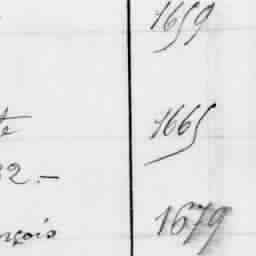 1659
te 1665
82.-
nçois 1679